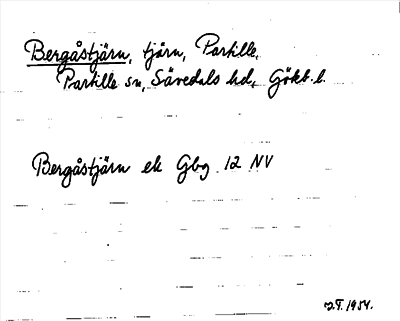 Bergåstjärn, tjärn, Partille,
Partille sn, Sävedals hd, Gökb. l.
Bergåstjärn ek Gbg 12 NV
1954.